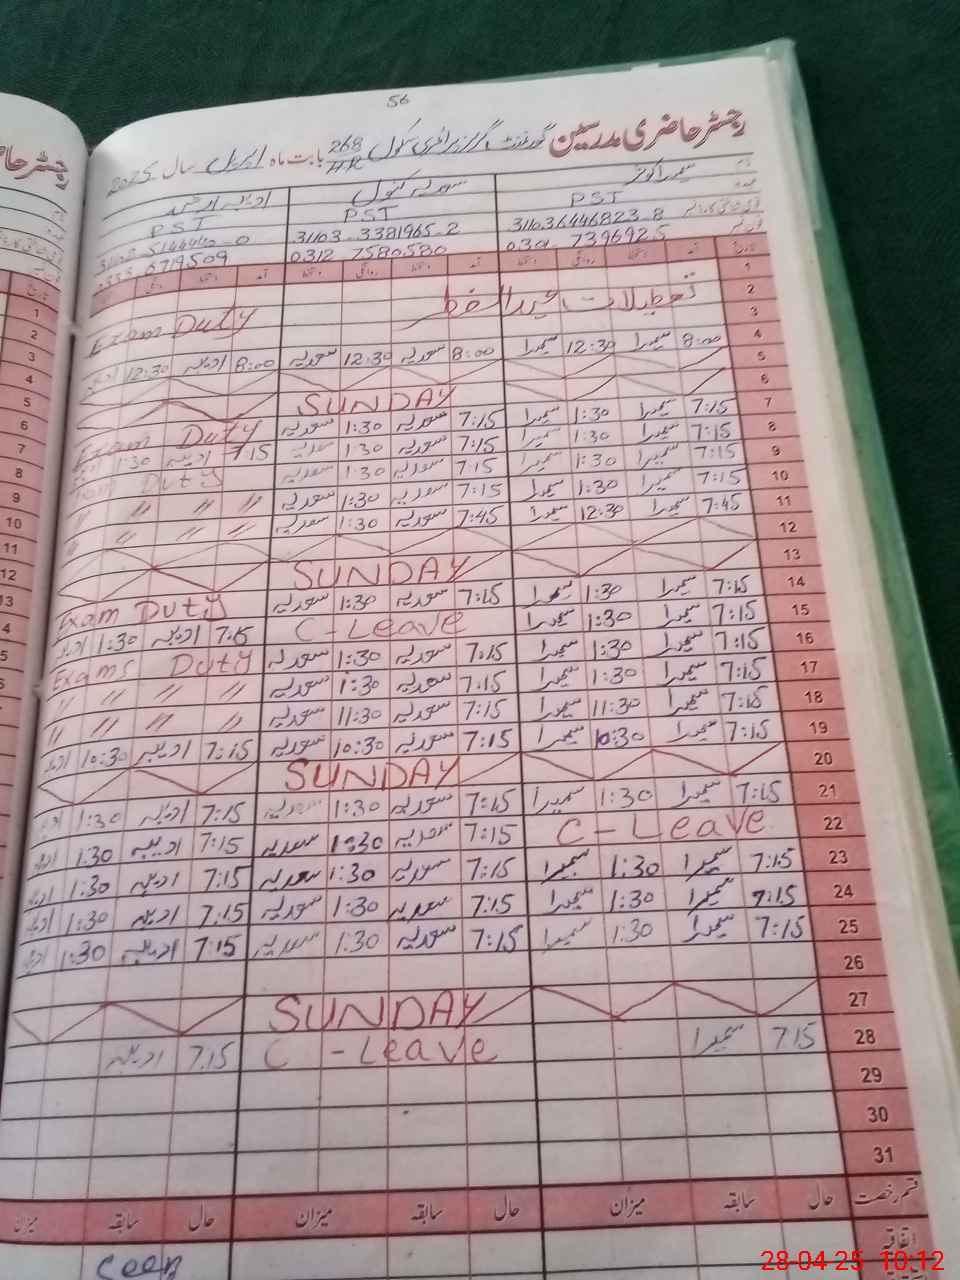 56
رجسٹر حاضری مدرسین گورنمنٹ گرلز پرائمری سکول 268 HR بابت ماہ اپریل سال 2025
سمیرا کوثر سعدیہ کنول
PST PST PST
31103 6446823-8 31103-3381965-2
7396925 0312 7580580 6719509
1
تعطیلات عید الفطر 2
Exam Duty 3
8:00 سمیرا 12:30 سمیرا 8:00 سعدیہ 12:30 سعدیہ 8:00 ادیبہ 12:30 4
5
SUNDAY 6
7:15 سمیرا 1:30 سمیرا 7:15 سعدیہ 1:30 سعدیہ Exam Duty 7
7:15 سمیرا 1:30 سمیرا 7:15 سعدیہ 1:30 سعدیہ 7:15 ادیبہ 1:30 8
7:15 سمیرا 1:30 سمیرا 7:15 سعدیہ 1:30 سعدیہ Exam Duty 9
7:15 سمیرا 1:30 سمیرا 7:15 سعدیہ 1:30 سعدیہ // // // // 10
7:45 سمیرا 12:30 سمیرا 7:45 سعدیہ 1:30 سعدیہ // // // 11
12
SUNDAY 13
7:15 سمیرا 1:30 سمیرا 7:15 سعدیہ 1:30 سعدیہ Exam Duty 14
7:15 سمیرا 1:30 سمیرا C-Leave 7:15 ادیبہ 1:30 15
7:15 سمیرا 1:30 سمیرا 7:15 سعدیہ 1:30 سعدیہ Exams Duty 16
7:15 سمیرا 1:30 سمیرا 7:15 سعدیہ 1:30 سعدیہ // // // // 17
7:15 سمیرا 11:30 سمیرا 7:15 سعدیہ 11:30 سعدیہ // // // // 18
7:15 سمیرا 10:30 سمیرا 7:15 سعدیہ 10:30 سعدیہ 7:15 ادیبہ 10:30 19
SUNDAY 20
7:15 سمیرا 1:30 سمیرا 7:15 سعدیہ 1:30 سعدیہ 7:15 ادیبہ 1:30 21
C-Leave 7:15 سعدیہ 1:30 سعدیہ 7:15 ادیبہ 1:30 22
7:15 سمیرا 1:30 سمیرا 7:15 سعدیہ 1:30 سعدیہ 7:15 ادیبہ 1:30 23
7:15 سمیرا 1:30 سمیرا 7:15 سعدیہ 1:30 سعدیہ 7:15 ادیبہ 1:30 24
7:15 سمیرا 1:30 سمیرا 7:15 سعدیہ 1:30 سعدیہ 7:15 ادیبہ 1:30 25
26
SUNDAY 27
7:15 سمیرا C-Leave 7:15 ادیبہ 28
29
30
31
قسم رخصت حال سابقہ میزان حال سابقہ میزان حال سابقہ میزان
اتفاقیہ
Seen
28-04-25 10:12